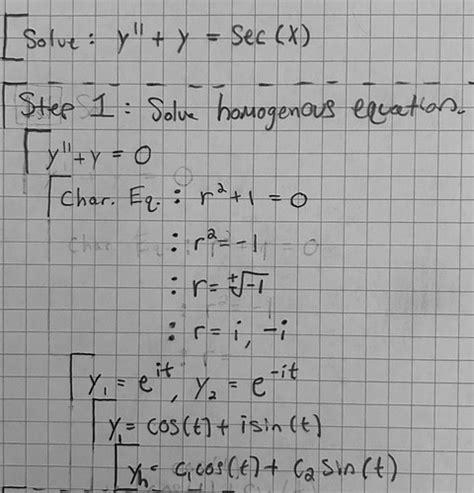 Solve: y'' + y = Sec(x)
Step 1: Solve homogenous equation.
y'' + y = 0
Char. Eq. : r² + 1 = 0
: r² = -1
: r = ±√-1
: r = i, -i
y₁ = e^it, y₂ = e^-it
y₁ = cos(t) + isin(t)
yh = c₁cos(t) + c₂sin(t)